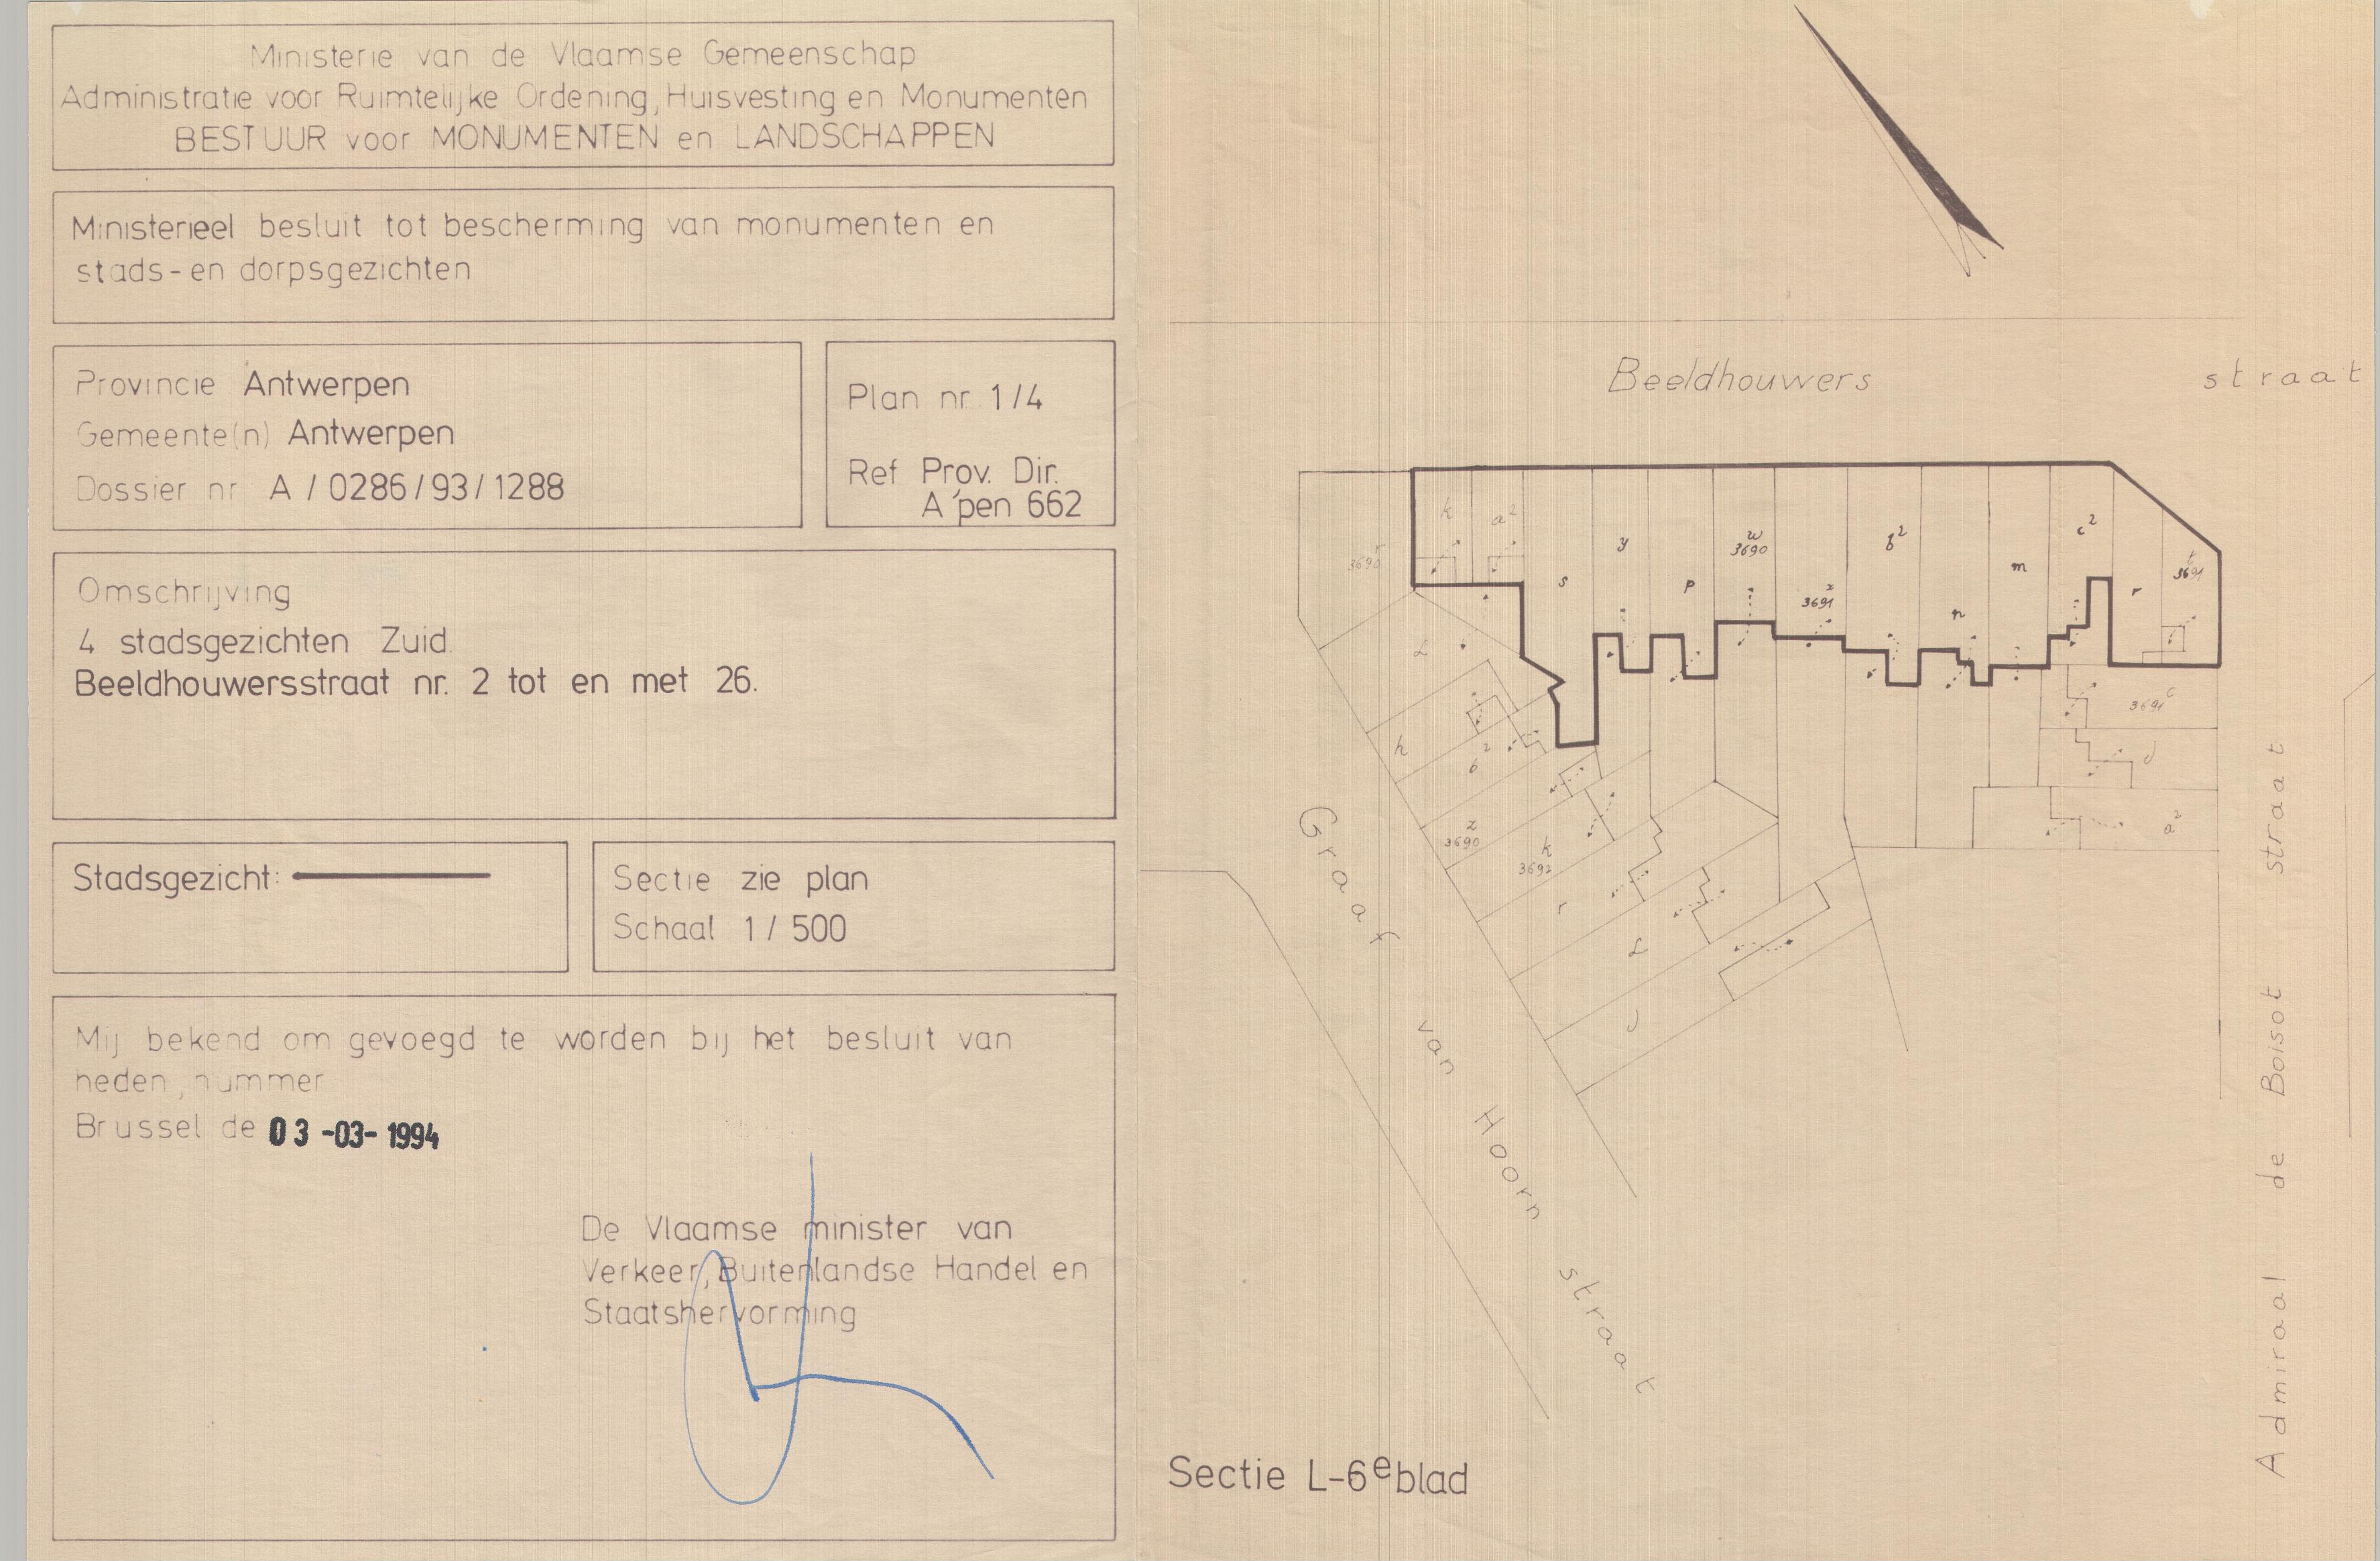 Ministerie van de Vlaamse Gemeenschap
Administratie voor Ruimtelijke Ordening, Huisvesting en Monumenten
BESTUUR voor MONUMENTEN en LANDSCHAPPEN
Ministerieel besluit tot bescherming van monumenten en
stads-en dorpsgezichten
Provincie Antwerpen
Gemeente(n) Antwerpen
Dossier nr A / 0286/93/1288
Plan nr. 1/4
Ref Prov. Dir.
A'pen 662
Omschrijving
4 stadsgezichten Zuid.
Beeldhouwersstraat nr. 2 tot en met 26.
Stadsgezicht:
Sectie zie plan
Schaal 1 / 500
Mij bekend om gevoegd te worden bij het besluit van
heden, nummer
Brussel de 03-03-1994
De Vlaamse minister van
Verkeer, Buitenlandse Handel en
Staatshervorming
Beeldhouwers straat
k
a²
s
y
p
w
3690
x
3691
b²
n
m
c²
r
t
3691
r
3690
L
h
b²
z
3690
k
3692
r
L
c
3691
d
a²
Graaf van Hoorn straat
Admiraal de Boisot straat
Sectie L-6e blad